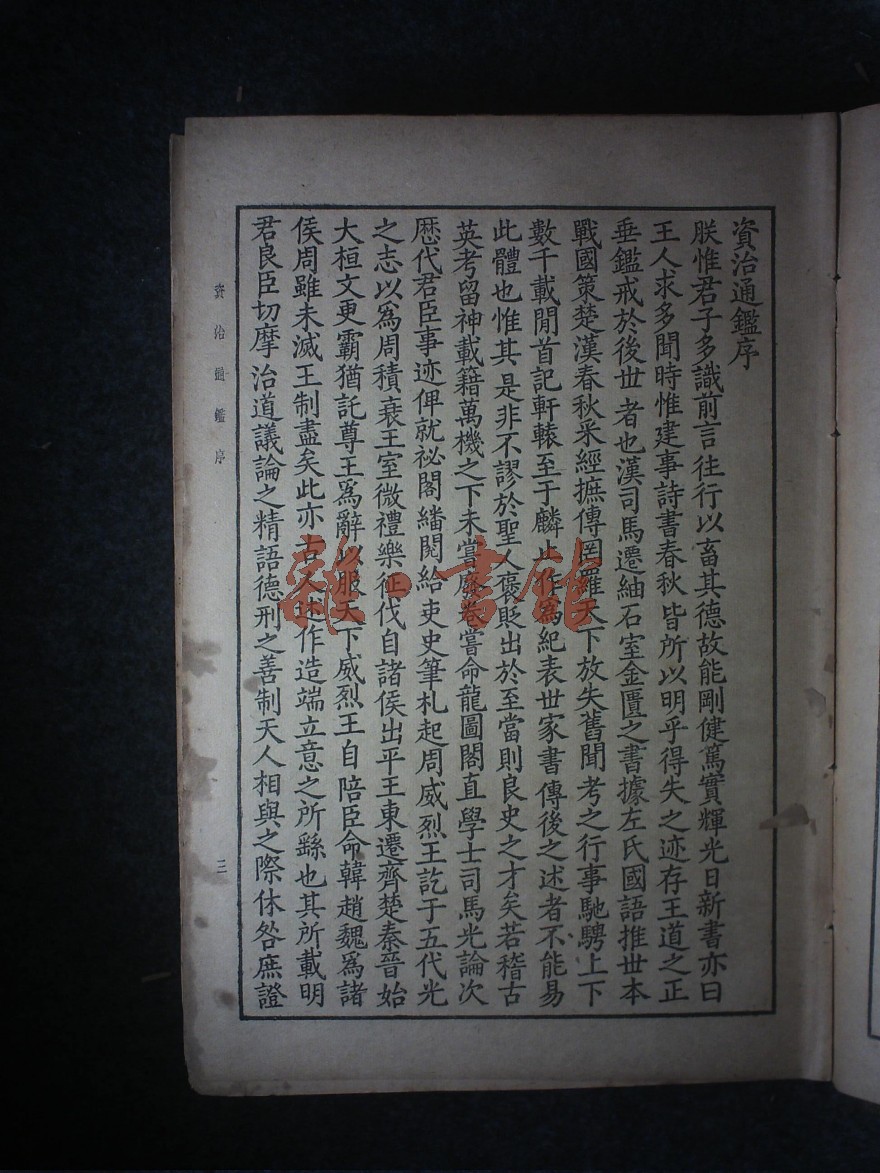 資治通鑑序
朕惟君子多識前言往行以畜其德故能剛健篤實輝光日新書亦曰
王人求多聞時惟建事詩書春秋皆所以明乎得失之迹存王道之正
垂鑑戒於後世者也漢司馬遷紬石室金匱之書據左氏國語推世本
戰國策楚漢春秋采經摭傳罔羅天下放失舊聞考之行事馳騁上下
數千載閒首記軒轅至于麟止作爲紀表世家書傳後之述者不能易
此體也惟其是非不謬於聖人褒貶出於至當則良史之才矣若稽古
英考留神載籍萬機之下未嘗廢卷嘗命龍圖閣直學士司馬光論次
歷代君臣事迹俾就祕閣繙閱給吏史筆札起周威烈王訖于五代光
之志以爲周積衰王室微禮樂征伐自諸侯出平王東遷齊楚秦晉始
大桓文更霸猶託尊王爲辭以服天下威烈王自陪臣命韓趙魏爲諸
侯周雖未滅王制盡矣此亦古人述作造端立意之所繇也其所載明
君良臣切摩治道議論之精語德刑之善制天人相與之際休咎庶證
資治通鑑序
三
雜·書館